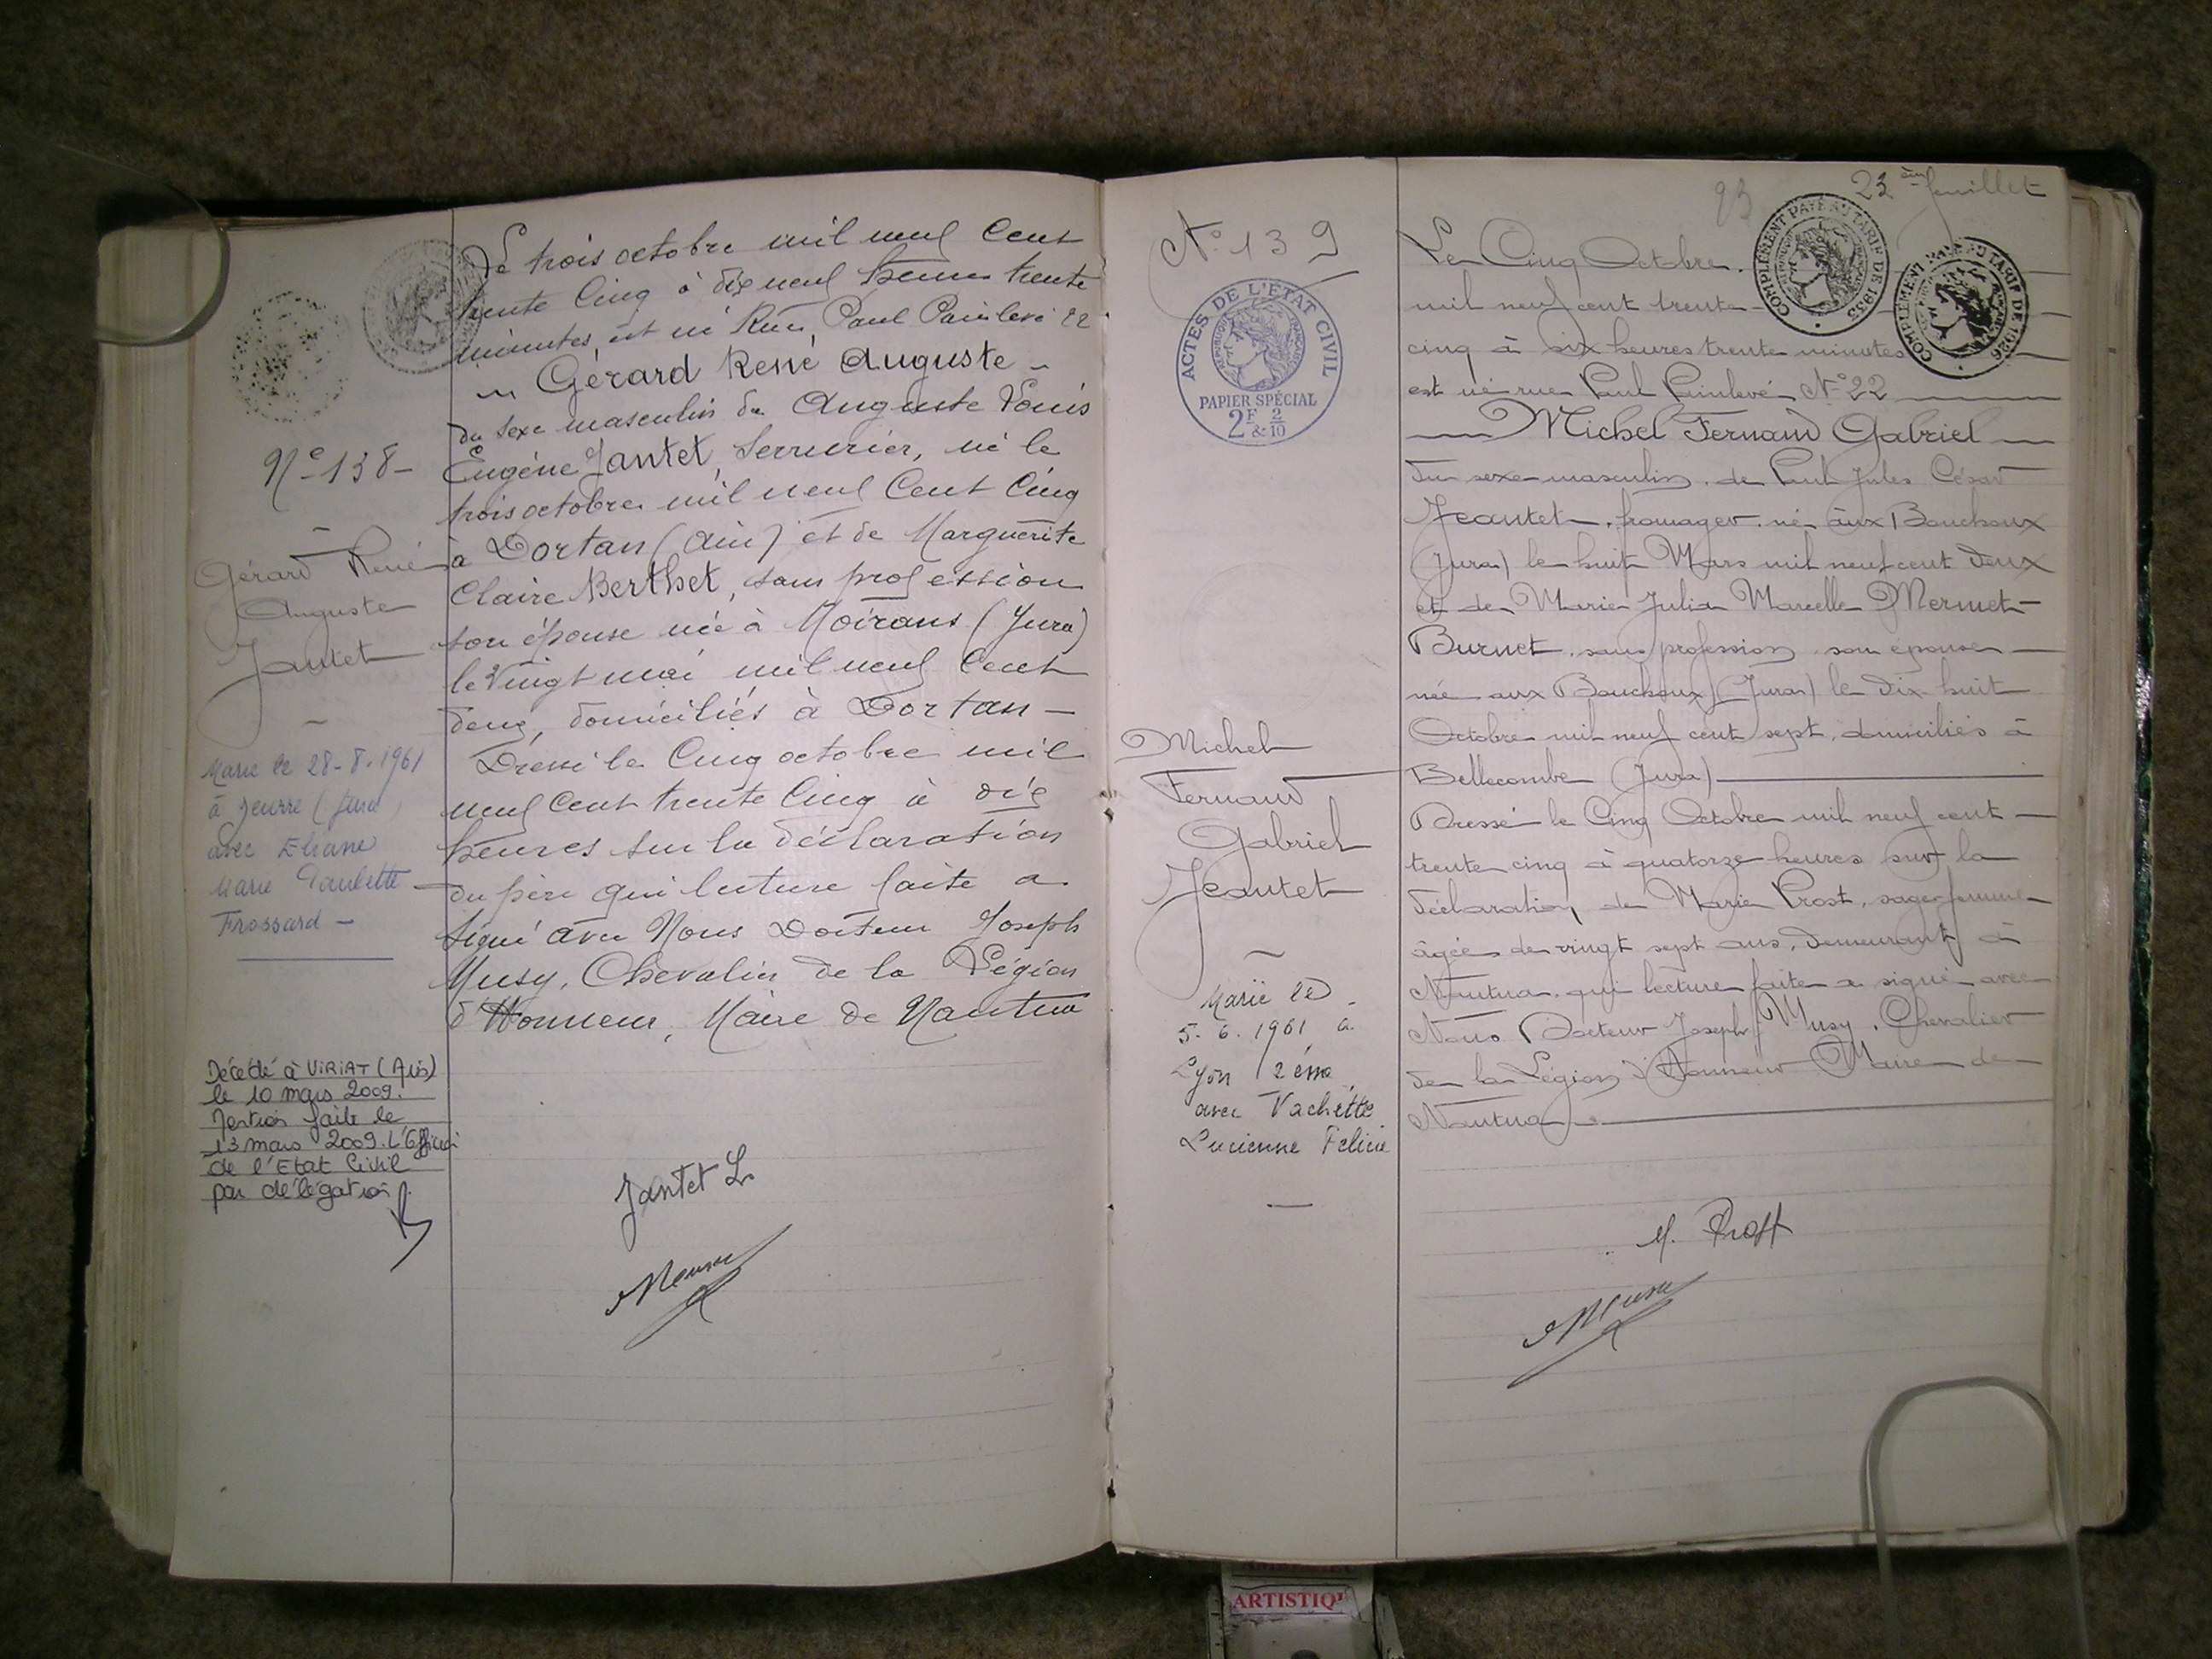 Le trois octobre mil neuf Cent
trente Cinq à dix neuf heures trente
minutes, est né Rue Paul Painlevé 22
Gérard René Auguste
du sexe masculin de Auguste Louis
Eugéne Jantet, Serrurier, né le
trois octobre mil neuf Cent Cinq
à Dortan (Ain) et de Marguerite
Claire Berthet, sans profession
son épouse née à Moirans (Jura)
le Vingt mai mil neuf Cent
deux, domiciliés à Dortan -
Dressé le Cinq octobre mil
neuf Cent trente Cinq à dix
heures sur la déclaration
du père qui lecture faite a
signé avec Nous Docteur Joseph
Musy, Chevalier de la Légion
d'Honneur, Maire de Nantua
Jantet L.
N° 138 -
Gérard René
Auguste
Jantet
Marié le 28-8-1961
à Jeurre (Jura)
avec Eliane
Marie Paulette
Frossard -
Décédé à VIRIAT (Ain)
le 10 mars 2009.
Mention faite le
13 mars 2009. L'Officier
de l'Etat Civil
par délégation
N° 139
ACTES DE L'ÉTAT CIVIL
RÉPUBLIQUE FRANÇAISE
PAPIER SPÉCIAL
2F & 2/10
Michel
Fernand
Gabriel
Jeantet
Marié le
5. 6. 1961 à
Lyon 2ème
avec Vachette
Lucienne Félicie
23
23 ème feuillet
COMPLÉMENT PAYÉ AU TARIF DE 1935
COMPLÉMENT PAYÉ AU TARIF DE 1926
Le Cinq Octobre
mil neuf cent trente-
cinq à six heures trente minutes
est né rue Paul Painlevé N° 22
Michel Fernand Gabriel
du sexe masculin, de Paul Jules César
Jeantet, fromager, né aux Bouchoux
(Jura) le huit Mars mil neuf cent deux
et de Marie Julia Marcelle Mermet-
Burnet, sans profession, son épouse
née aux Bouchoux (Jura) le dix huit
Octobre mil neuf cent sept, domiciliés à
Bellecombe (Jura)
Dressé le Cinq Octobre mil neuf cent
trente cinq à quatorze heures sur la
déclaration de Marie Prost, sage-femme
âgée de vingt sept ans, demeurant à
Nantua, qui lecture faite a signé avec
Nous Docteur Joseph Musy, Chevalier
de la Légion d'Honneur Maire de
Nantua
M. Prost
ARTISTIQ